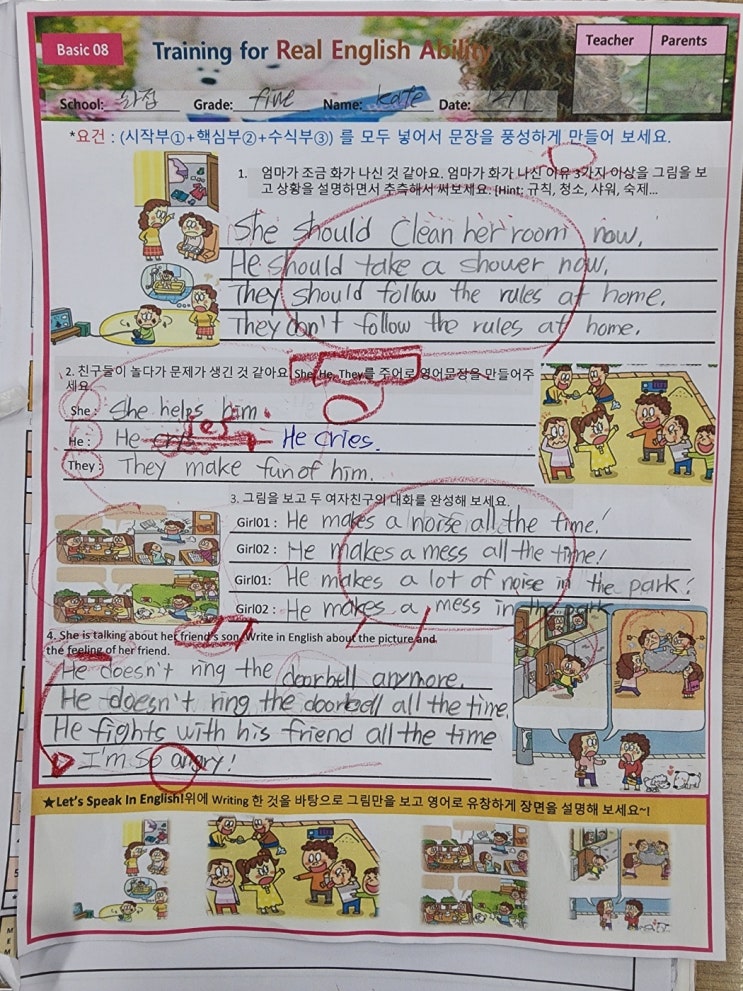 Basic 08
Training for Real English Ability
Teacher Parents
School: 화접 Grade: five Name: Kate Date: 12/1
*요건 : (시작부①+핵심부②+수식부③) 를 모두 넣어서 문장을 풍성하게 만들어 보세요.
1. 엄마가 조금 화가 나신 것 같아요. 엄마가 화가 나신 이유 3가지 이상을 그림을 보
고 상황을 설명하면서 추측해서 써보세요. [Hint: 규칙, 청소, 샤워, 숙제...
She should clean her room now.
He should take a shower now.
They should follow the rules at home.
They don't follow the rules at home.
2. 친구들이 놀다가 문제가 생긴 것 같아요. She, He, They를 주어로 영어문장을 만들어주
세요.
She : She helps him.
He : He He cries.
They : They make fun of him.
3. 그림을 보고 두 여자친구의 대화를 완성해 보세요.
Girl01 : He makes a noise all the time!
Girl02 : He makes a mess all the time!
Girl01: He makes a lot of noise in the park!
Girl02 : He makes a mess in the park
4. She is talking about her friend's son. Write in English about the picture and
the feeling of her friend.
He doesn't ring the doorbell anymore.
He doesn't ring the doorbell all the time.
He fights with his friend all the time
I'm so angry!
★Let's Speak In English!위에 Writing 한 것을 바탕으로 그림만을 보고 영어로 유창하게 장면을 설명해 보세요~!